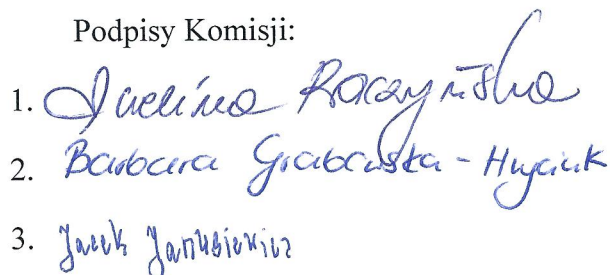 Podpisy Komisji:
1. Ewelina Raczyńska
2. Barbara Grabowska - Hryciuk
3. Jacek Janusiewicz